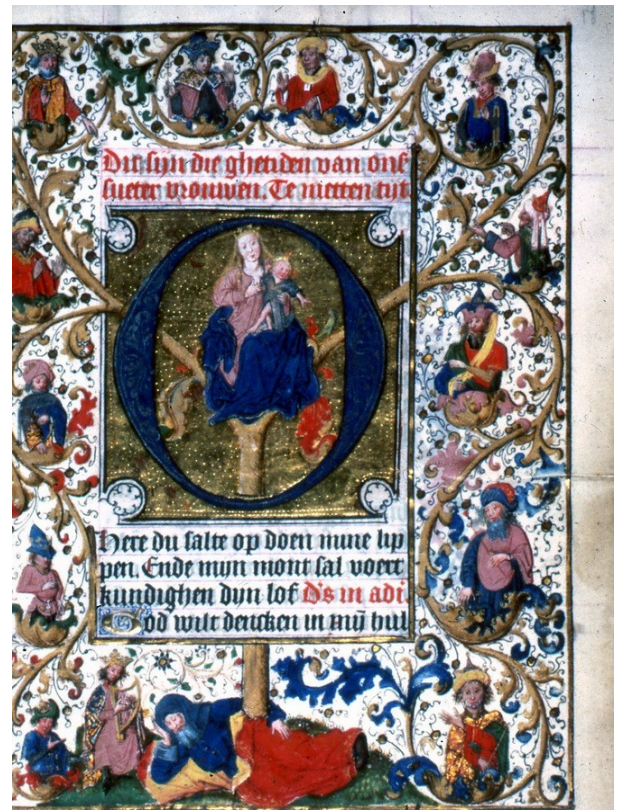 Dit sijn die ghetiden van onſ
ſueter vrouwen. Te metten tijt
O
Here du salte op doen mine lip
pen. Ende mijn mont sal voert
kundighen dijn lof D's in adi
God wilt dencken in mij hul